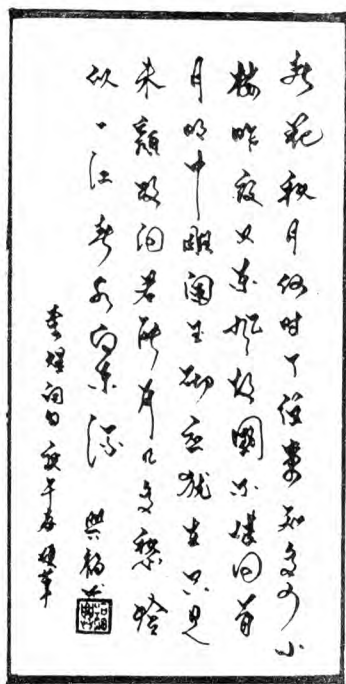 春花秋月何时了往事知多少小
楼昨夜又东风故國不堪回首
月明中雕阑玉砌应犹在只是
朱颜改问君能有几多愁恰
似一江春水向东流
李煜词句庚午春